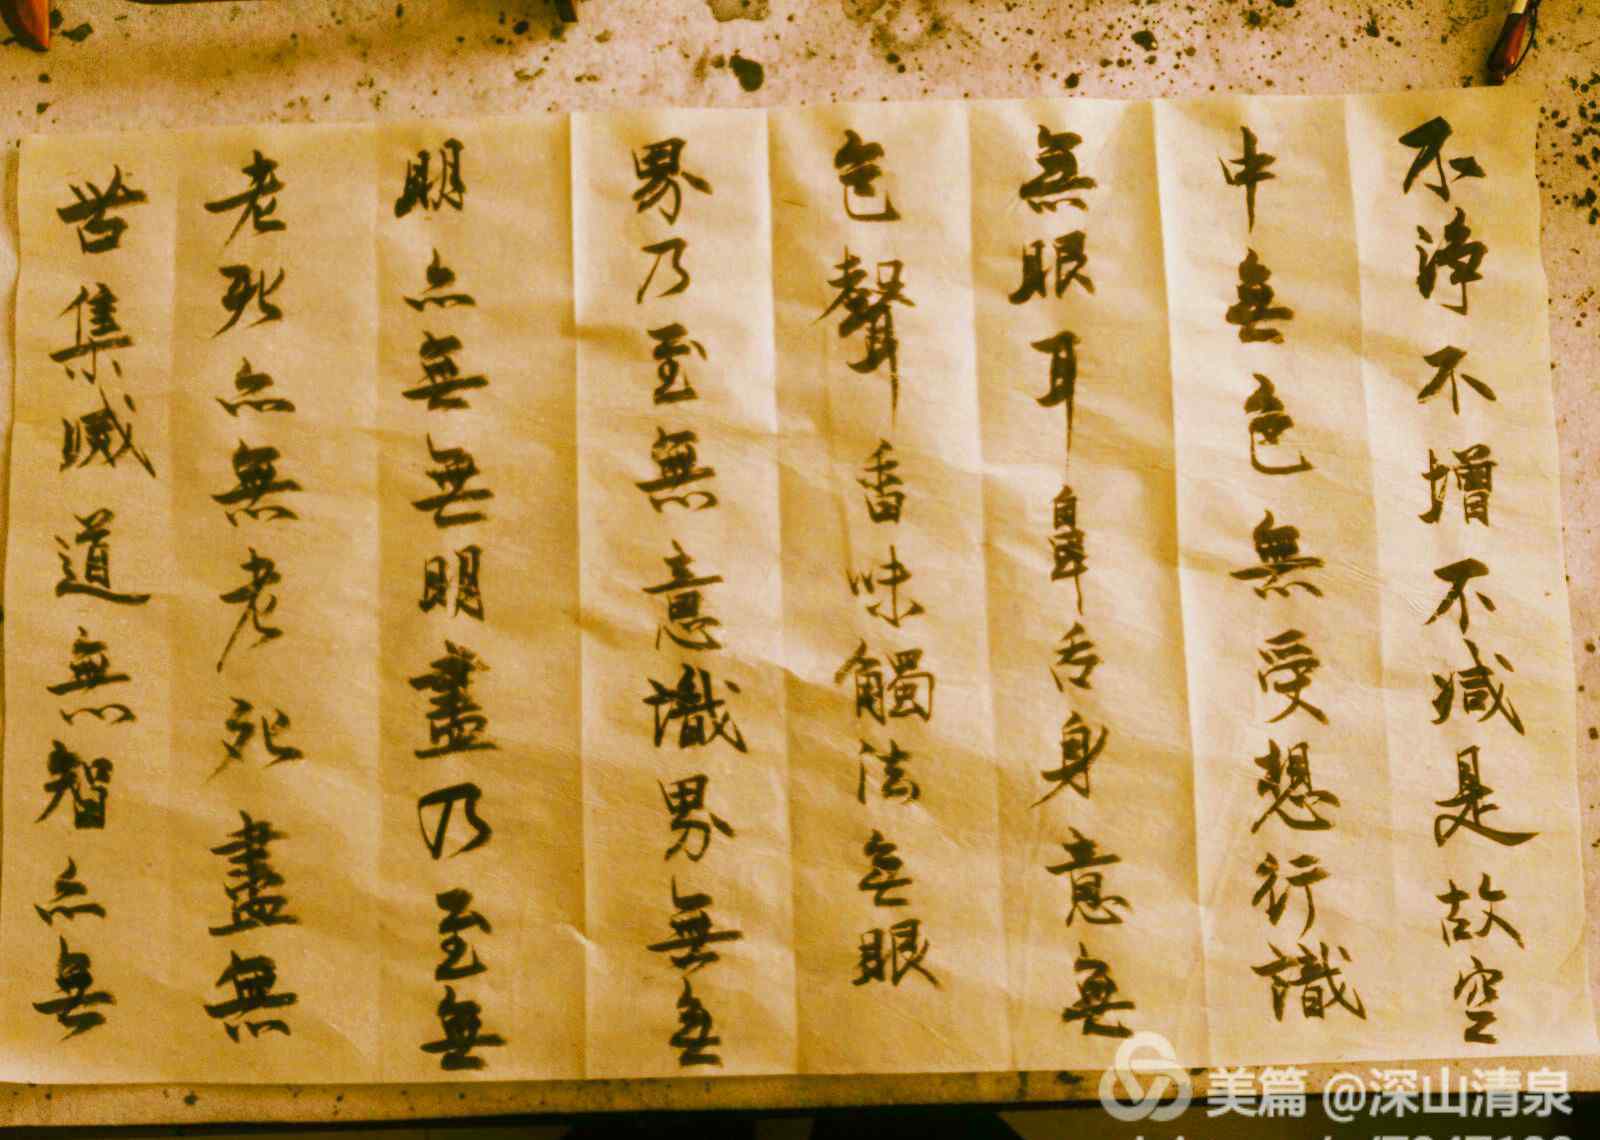 不淨不增不減是故空
中無色無受想行識
無眼耳鼻舌身意無
色聲香味觸法無眼
界乃至無意識界無無
明亦無無明盡乃至無
老死亦無老死盡無
苦集滅道無智亦無
美篇 @深山清泉